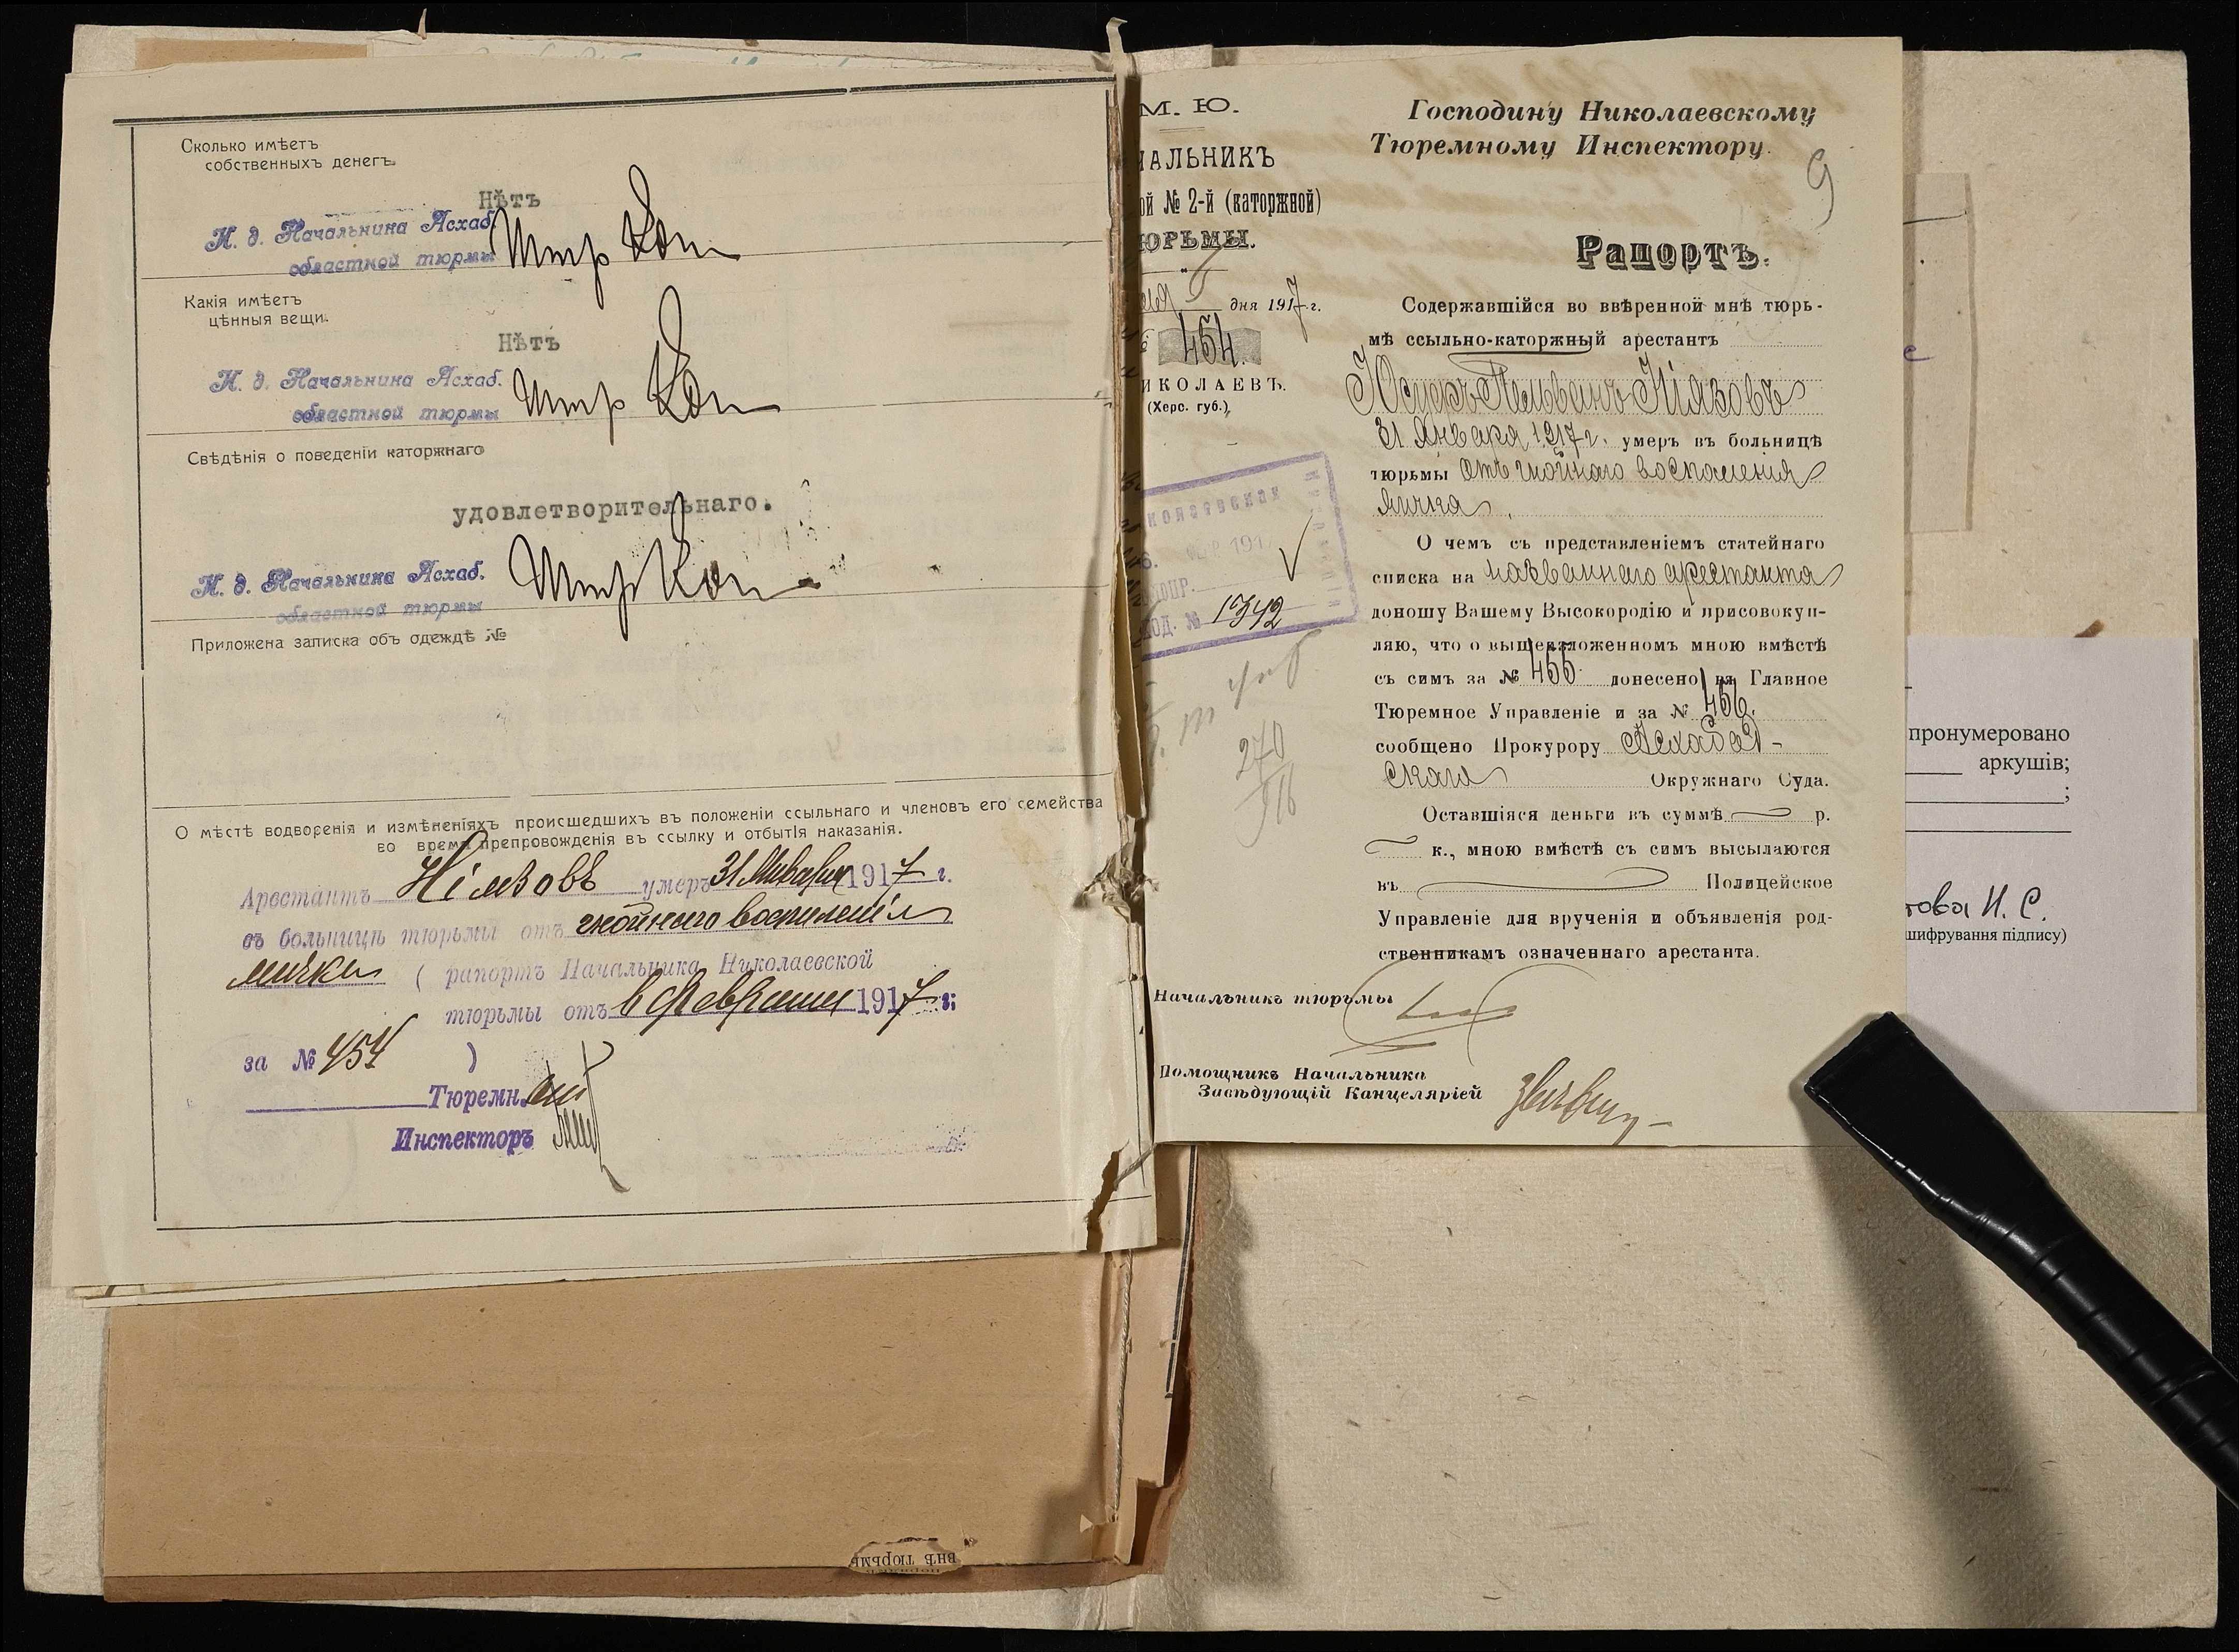 Сколько имѣетъ
собственныхъ денегъ
Нѣтъ
И. д. Начальника Асхаб.
областной тюрмы
Какія имѣетъ
цѣнныя вещи.
Нѣтъ
И. д. Начальника Асхаб.
областной тюрмы
Свѣдѣнія о поведеніи каторжнаго
удовлетворительнаго.
И. д. Начальника Асхаб.
областной тюрмы
Приложена записка объ одеждѣ №
О мѣстѣ водворенія и измѣненіяхъ происшедшихъ въ положеніи ссыльнаго и членовъ его семейства
во время препровожденія въ ссылку и отбытія наказанія.
Арестантъ Ніязовъ умеръ 31 Января 1917 г.
въ больницѣ тюрьмы отъ гнойнаго воспаленія
яичка ( рапортъ Начальника Николаевской
тюрьмы отъ 6 февраля 1917 г;
за № 454 )
Тюремн.
Инспекторъ
М. Ю.
ЧАЛЬНИКЪ
ой № 2-й (каторжной)
ЮРЬМЫ.
дня 1917 г.
454.
ИКОЛАЕВЪ.
(Херс. губ.)
191
ХОД. № 1342
270
16
Господину Николаевскому
Тюремному Инспектору.
9
Рапортъ.
Содержавшійся во ввѣренной мнѣ тюрь-
мѣ ссыльно-каторжный арестантъ
Юсуфъ Пальванъ Ніязовъ
31 Января 1917 г. умеръ въ больницѣ
тюрьмы отъ гнойнаго воспаленія
яичка.
О чемъ съ представленіемъ статейнаго
списка на названнаго арестанта
доношу Вашему Высокородію и присовокуп-
ляю, что о вышеизложенномъ мною вмѣстѣ
съ симъ за № 455 донесено въ Главное
Тюремное Управленіе и за № 456.
сообщено Прокурору Асхабад-
скаго Окружнаго Суда.
Оставшіяся деньги въ суммѣ р.
к., мною вмѣстѣ съ симъ высылаются
въ Полицейское
Управленіе для врученія и объявленія род-
ственникамъ означеннаго арестанта.
Начальникъ тюрьмы
Помощникъ Начальника
Завѣдующій Канцеляріей
пронумеровано
аркушів;
;
това Н. С.
шифрування підпису)
внѣ тюрьм